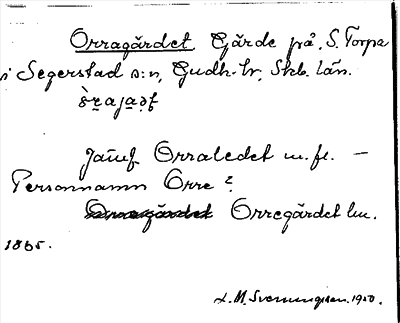 Orragärdet Gärde på S. Torpa
i Segerstad s:n, Gudh. hr, Skb. län.
Jämf Orraledet m. fl. –
Personnamn Orre?
Orregärdet lm.
1865.
L. M. Svenungsson. 1930.